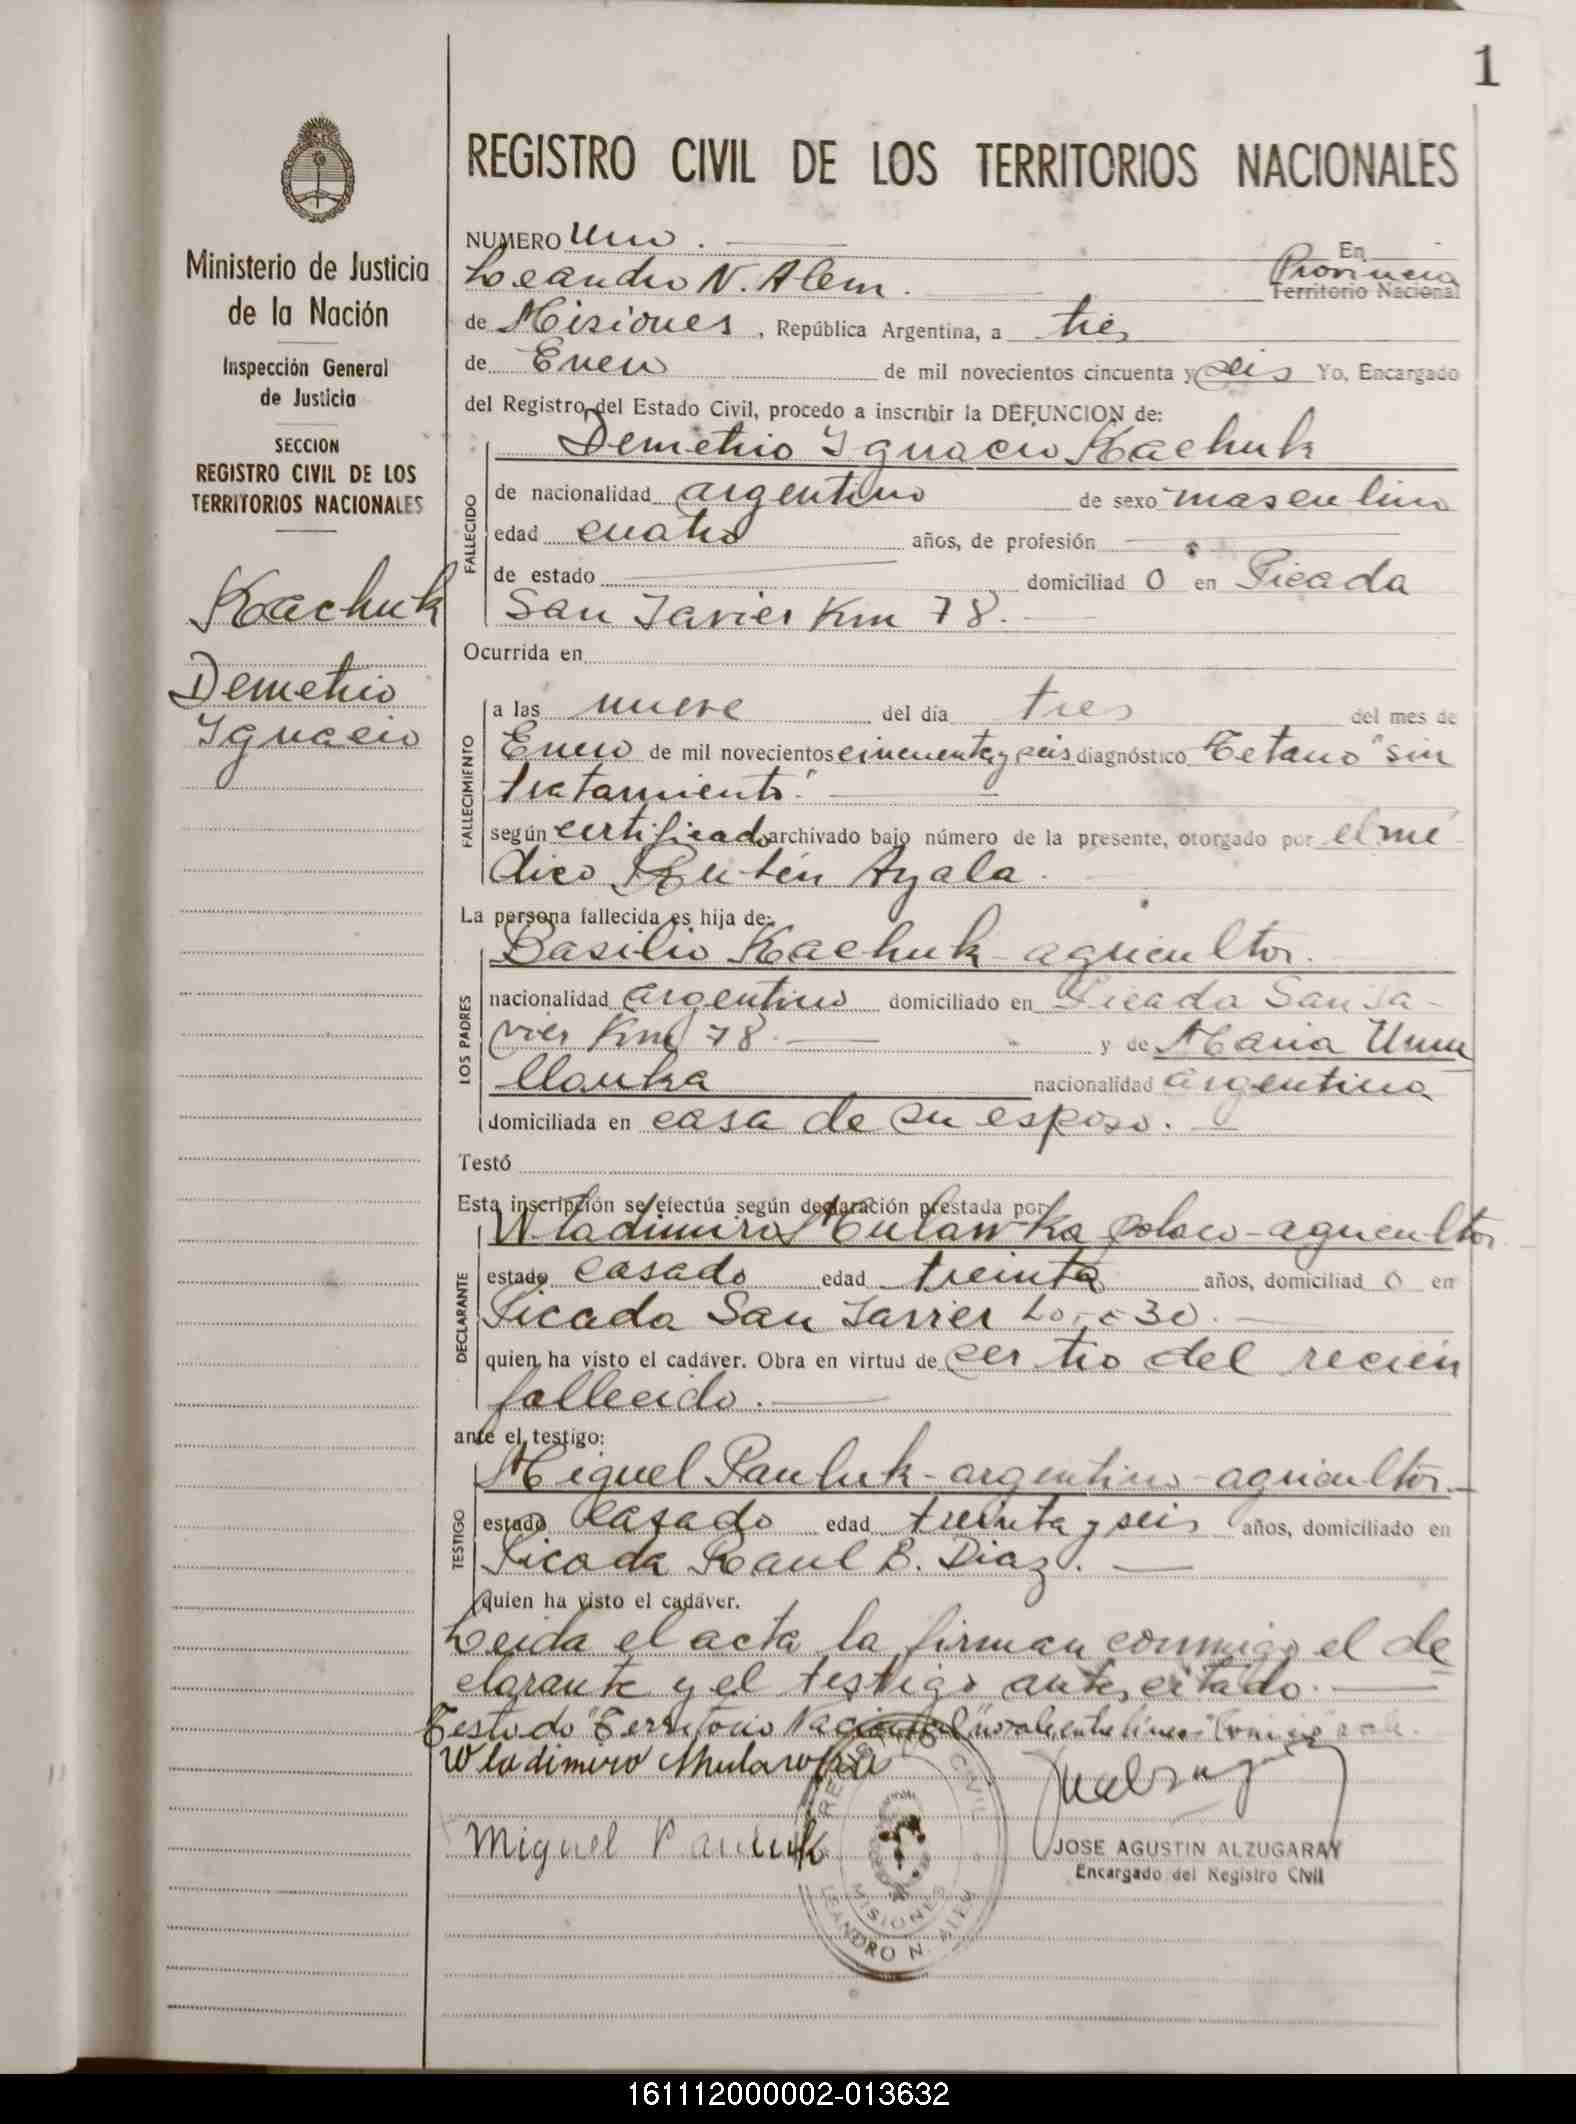 1
REGISTRO CIVIL DE LOS TERRITORIOS NACIONALES
Ministerio de Justicia
de la Nación
Inspección General
de Justicia
SECCION
REGISTRO CIVIL DE LOS
TERRITORIOS NACIONALES
Kachuk
Demetrio
Ignacio
NUMERO Uno. En
Leandro N. Alem. Provincia
Territorio Nacional
de Misiones, República Argentina, a tres
de Enero de mil novecientos cincuenta y seis Yo, Encargado
del Registro del Estado Civil, procedo a inscribir la DEFUNCION de:
FALLECIDO
Demetrio Ignacio Kachuk
de nacionalidad argentino de sexo masculino
edad cuatro años, de profesión
de estado domiciliad o en Picada
San Javier Km 78.
Ocurrida en
FALLECIMIENTO
a las nueve del día tres del mes de
Enero de mil novecientos cincuenta y seis diagnóstico Tetano "sin
tratamiento".
según certificado archivado bajo número de la presente, otorgado por el mé
dico Rubén Ayala.
La persona fallecida es hija de:
LOS PADRES
Basilio Kachuk - agricultor.
nacionalidad argentino domiciliado en Picada San Ja-
vier Km 78. y de Maria
nacionalidad argentina
domiciliada en casa de su esposo.
Testó
Esta inscripción se efectúa según declaración prestada por
DECLARANTE
Wladimiro Mulawka polaco - agricultor
estado casado edad treinta años, domiciliad o en
Picada San Javier Lote 30.
quien ha visto el cadáver. Obra en virtud de ser tio del recién
fallecido.
ante el testigo:
TESTIGO
Miguel Pauluk - argentino - agricultor.
estado casado edad treinta y seis años, domiciliado en
Picada Raul B. Diaz.
quien ha visto el cadáver.
Leida el acta la firman conmigo el de
clarante y el testigo antes citado.
Testado "Territorio Nacional" no vale, entre lineas vale.
Wladimiro Mulawka
Miguel Pauluk
REGISTRO CIVIL
MISIONES
LEANDRO N. ALEM
JOSE AGUSTIN ALZUGARAY
Encargado del Registro Civil
161112000002-013632